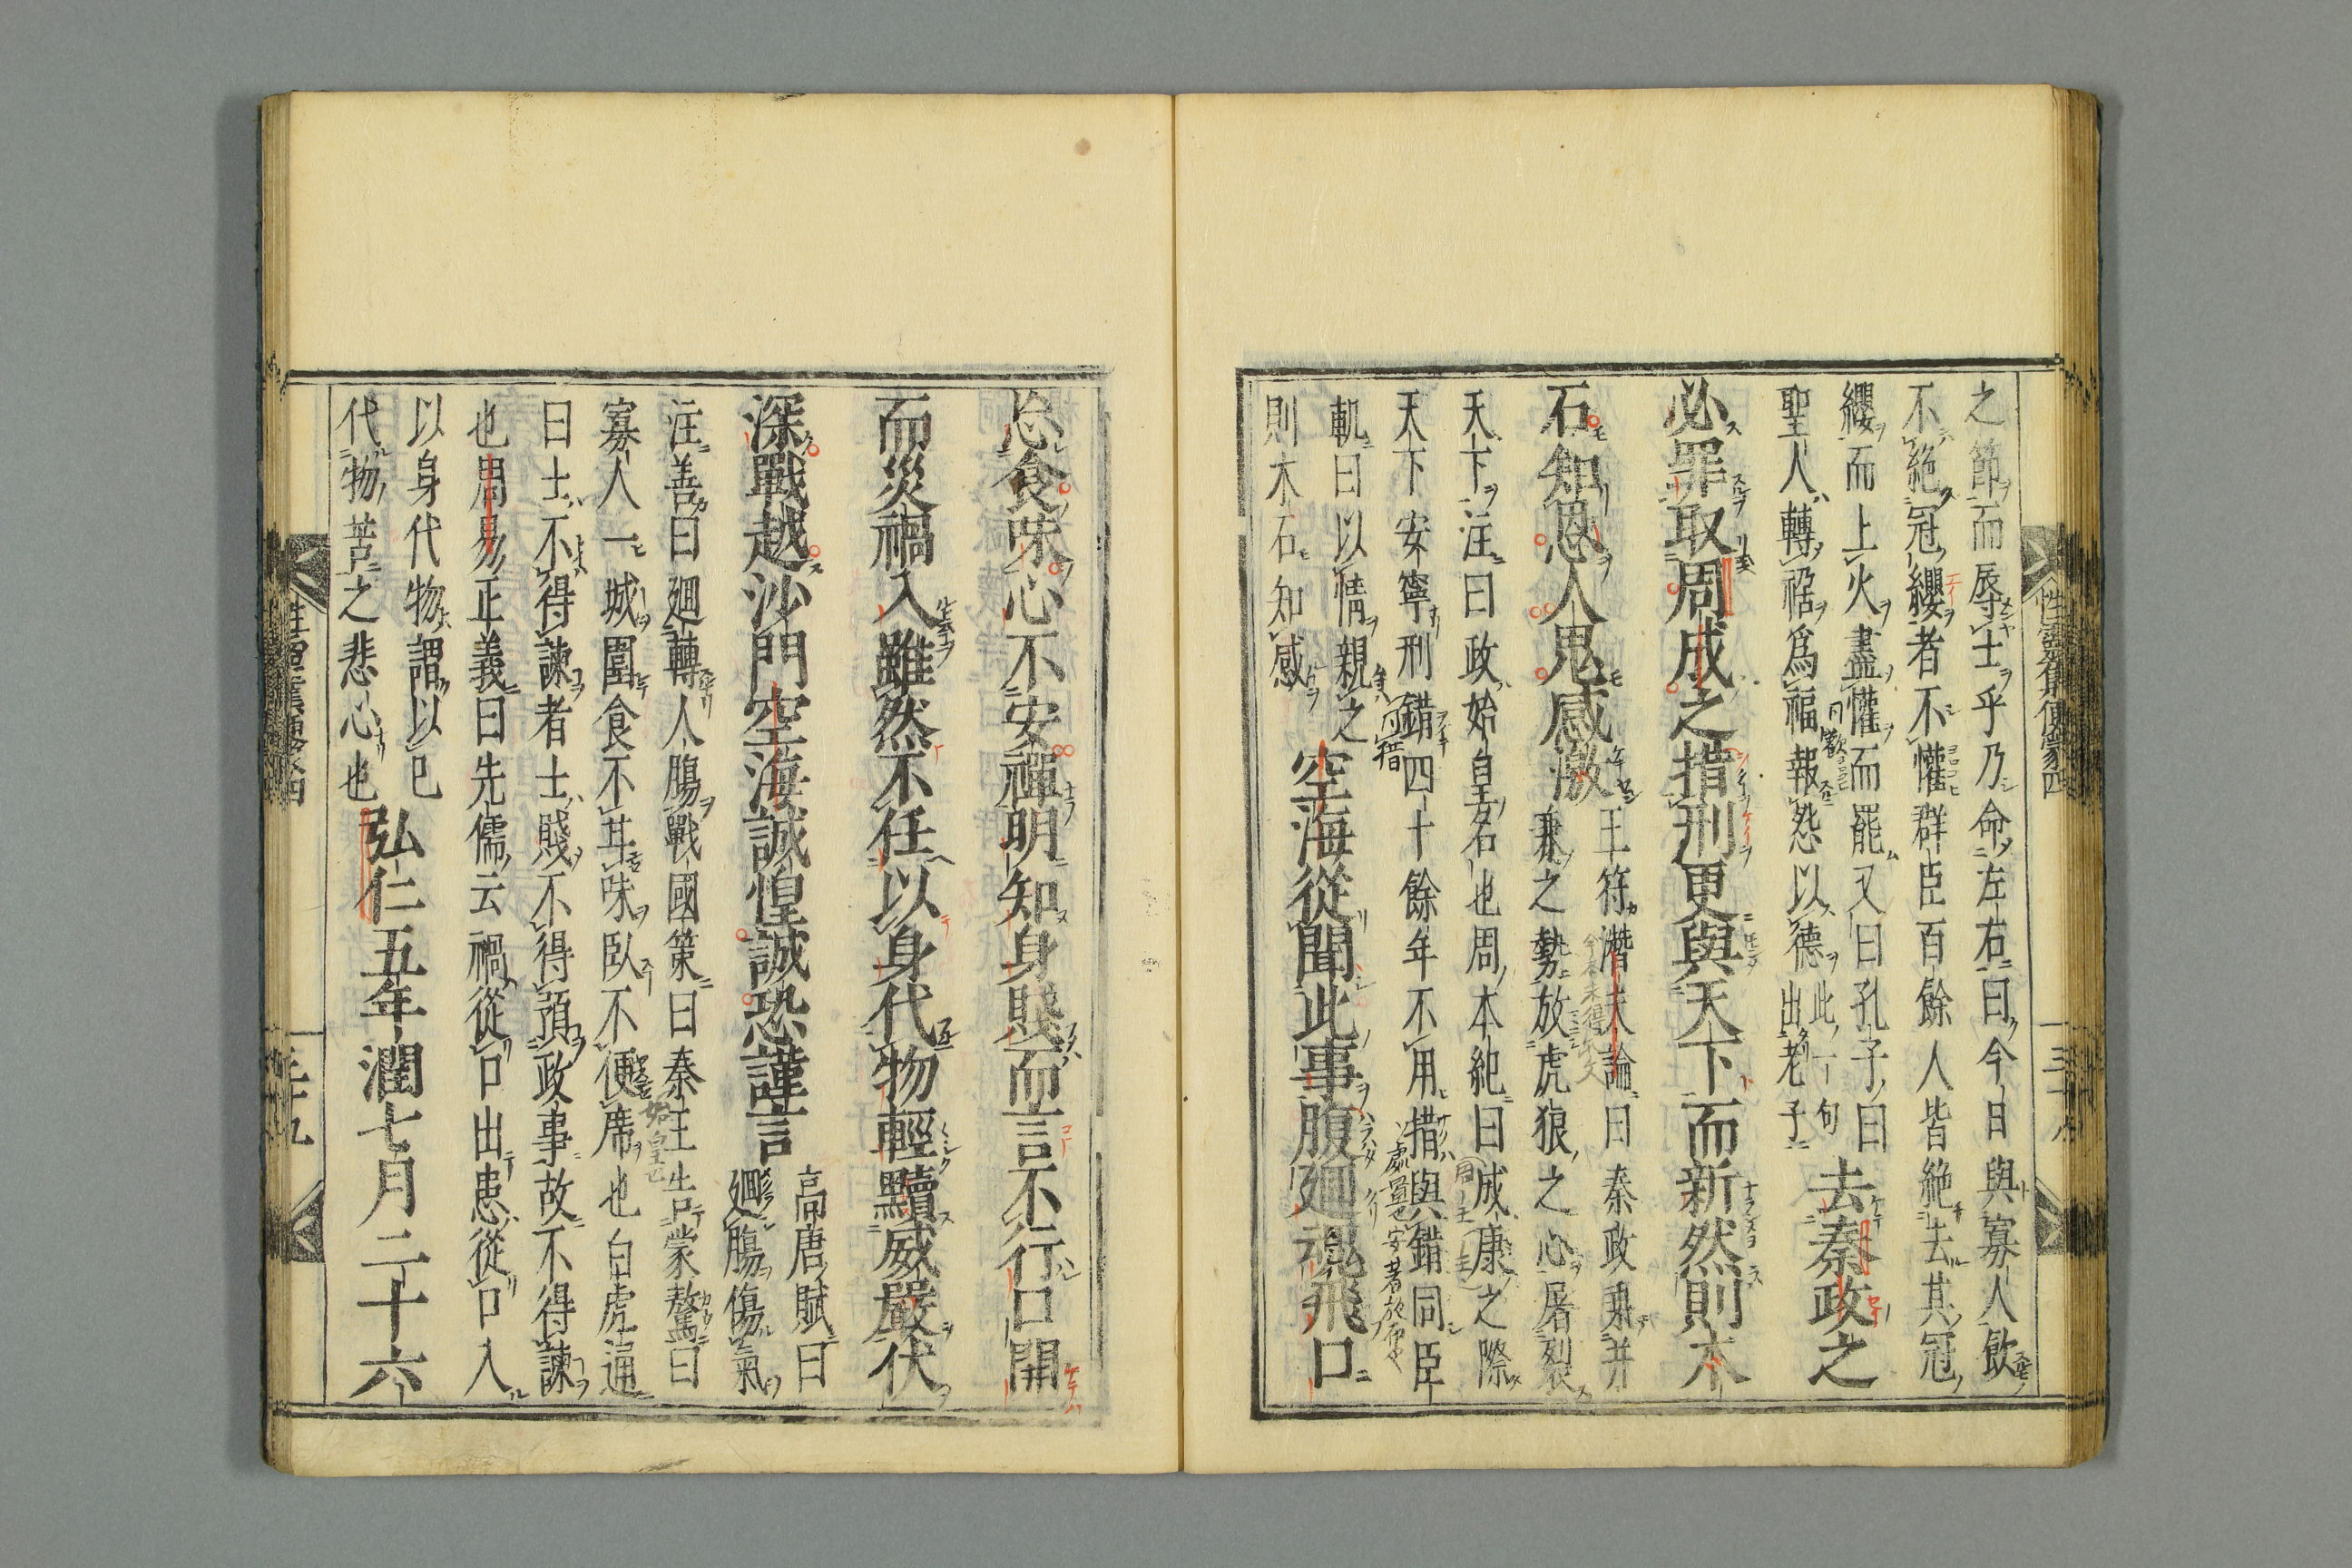 性靈集便蒙四
三十八
之節而辱士乎乃命左右曰今日與寡人飲
不絕冠纓者不懽群臣百餘人皆絕去其冠
纓而上火盡懽而罷又曰孔子曰
聖人轉禍爲福報怨以德此一句出老子
去秦政之
必罪取周成之措刑更與天下而新然則木
石知恩人鬼感激
王符潛夫論曰秦政乘并
兼之勢放虎狼之心屠裂
天下注曰政始皇名也周本紀曰成康之際
天下安寧刑錯四十餘年不用措與錯同臣
軌曰以情親之
則木石知感
空海從聞此事腹廻魂飛口
忘食味心不安禪明知身賤而言不行口開
而災禍入雖然不任以身代物輕黷威嚴伏
深戰越沙門空海誠惶誠恐謹言
高唐賦曰
廻腸傷氣
注善曰廻轉人腸戰國策曰秦王告蒙驁曰
寡人一城圍食不甘味臥不便席也白虎通
曰士不得諫者士賤不得預政事故不得諫
也周易正義曰先儒云禍從口出患從口入
以身代物謂以已
代物苦之悲心也
弘仁五年潤七月二十六
三十九